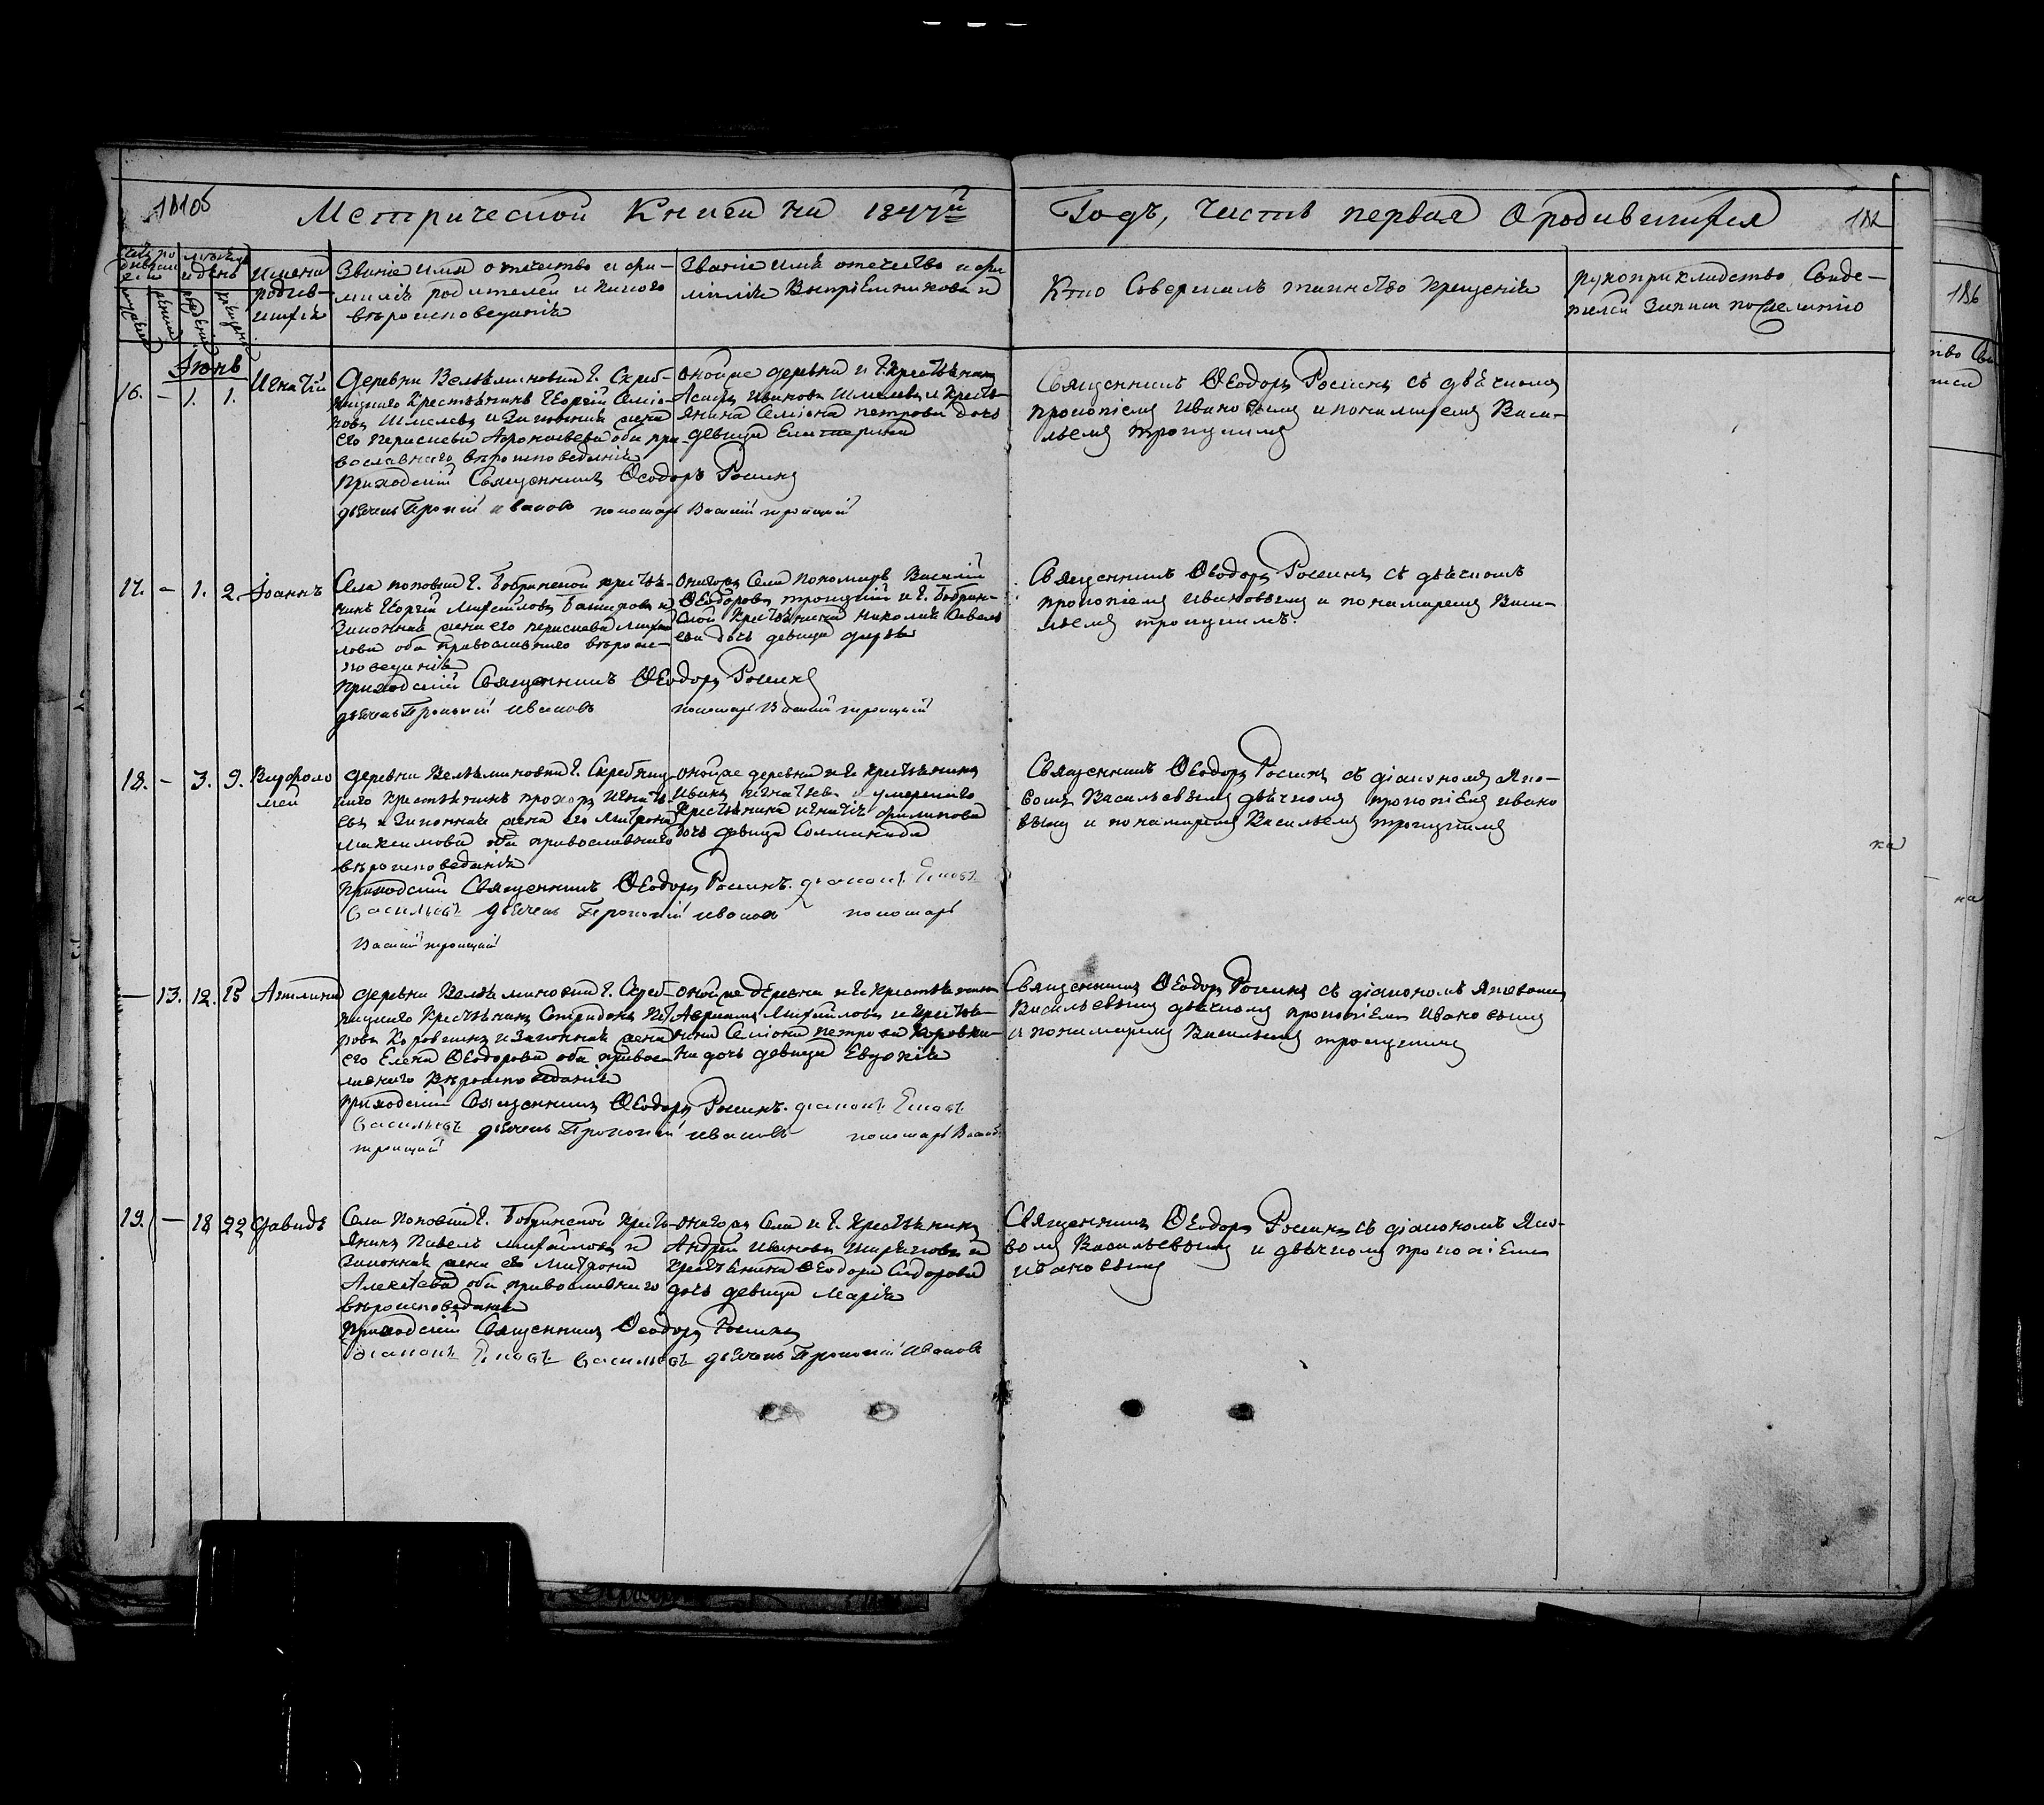 Метрической Книги на 1847й Годъ, Часть первая О родившихся
Имена
родив-
шихся
Званіе имя отечество и фа-
милія родителей и какого
вѣроисповеданія
Званіе имя отечество и фа
милія Воспріемниковъ
Кто Совершалъ таинство крещенія
рукоприкладство Свиде-
телей Записи по желанію
186
Іюнь
16. – 1. 1. Игнатій
Деревни Вельяминовки Г. Скреб-
ницкаго Крестьянинъ Георгій Семіо-
новъ Шмелевъ и Законная жена
его Параскева оба пра-
вославнаго вѣроисповеданія
Приходскій Священникъ Ѳеодоръ Росинъ
дьячекъ Прокопій Ивановъ пономарь Василій троицкій
онойже деревни и Г. Крестьянинъ
Ивановъ Шмелевъ и Кресть-
янина Семіона петрова дочь
девица Екатерина
Священникъ Ѳеодоръ Росинъ съ дьячкомъ
прокопіемъ Ивановымъ и понамаремъ Васи-
льемъ троицкимъ
17. – 1. 2. Іоаннъ
Села поповки Г. Бобринской кресьтья-
нинъ Георгій Михайловъ и
Законная жена его параскева Михаи
лова оба православнаго вѣроис-
поведанія
приходскій Священникъ Ѳеодоръ Росинъ
дьячекъ Прокопій Ивановъ пономарь Василій троицкій
онагожъ Села пономарь Василій
Ѳеодоровъ троицкій и Г. Бобрин-
ской Крестьянина Николая Савель
ева дочь девица дарья
Священникъ Ѳеодоръ Росинъ съ дьячкомъ
прокопіемъ Ивановымъ и понамаремъ Васи-
льемъ троицкимъ.
18. – 3. 9. Варфоло
мей
деревни Вельяминовки Г. Скребниц-
каго крестьянинъ прохоръ Игнать-
евъ и Законная жена его Матрона
Максимова оба православнаго
вѣроисповеданія
приходскій Священникъ Ѳеодоръ Росинъ. діаконъ Яковъ
Васильевъ дьячекъ Прокопій Ивановъ пономарь
Василій троицкій
онойже деревни и Г. крестьянинъ
Иванъ Игнатьевъ и умершаго
Крестьянина Игнатія филипова
дочь девица Соломанида
Священникъ Ѳеодоръ Росинъ съ діакономъ Яко-
вомъ Васильевымъ дьячкомъ прокопіемъ Ивано
вымъ и понамаремъ Васильемъ троицкимъ
– 13. 12. 15 Акилина
деревни Вельяминовки Г. Скреб-
ницкаго Крестьянинъ Спиридонъ Пет
ровъ Коровкинъ и Законная жена
его Елена Ѳеодорова оба правос-
лавнаго Вѣроисповеданія
приходскій Священникъ Ѳеодоръ Росинъ. діаконъ Яковъ
Васильевъ дьячекъ Прокопій Ивановъ пономарь Василій
троицкій
онойже деревни и Г. крестьянинъ
Авраамъ Михайловъ и Крестья-
нина Семіона петрова Коровки-
на дочь девица Евдокія
Священникъ Ѳеодоръ Росинъ съ діакономъ Яковомъ
Васильевымъ дьячкомъ прокопіемъ Ивановымъ
и понамаремъ Васильемъ троицкимъ
19. – 18 22 Давидъ
Села Поповки Г. Бобринской Кресть-
янинъ Павелъ Михайловъ и
Законная жена его Матрона
Алексѣева оба православнаго
вѣроисповеданія
приходскій Священникъ Ѳеодоръ Росинъ
діаконъ Яковъ Васильевъ дьячекъ Прокопій Ивановъ
онагожъ Села и Г. Крестьянинъ
Андрей Ивановъ и
Крестьянина Ѳеодора Сидорова
дочь девица Марія
Священникъ Ѳеодоръ Росинъ съ діакономъ Яко-
вомъ Васильевымъ и дьячкомъ прокопіемъ
Ивановымъ